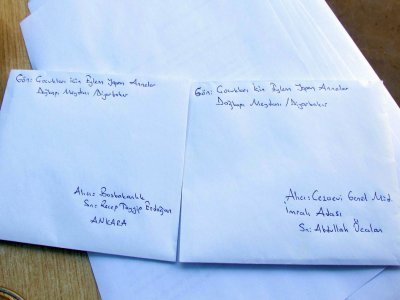 Gön: Çocukları İçin Eylem Yapan Anneler
Dağkapı Meydanı/Diyarbakır
Alıcı: Başbakanlık
Sn: Recep Tayyip Erdoğan
ANKARA
Gön: Çocukları İçin Eylem Yapan Anneler
Dağkapı Meydanı/Diyarbakır
Alıcı: Cezaevi Genel Müd.
İmralı Adası
Sn: Abdullah Öcalan